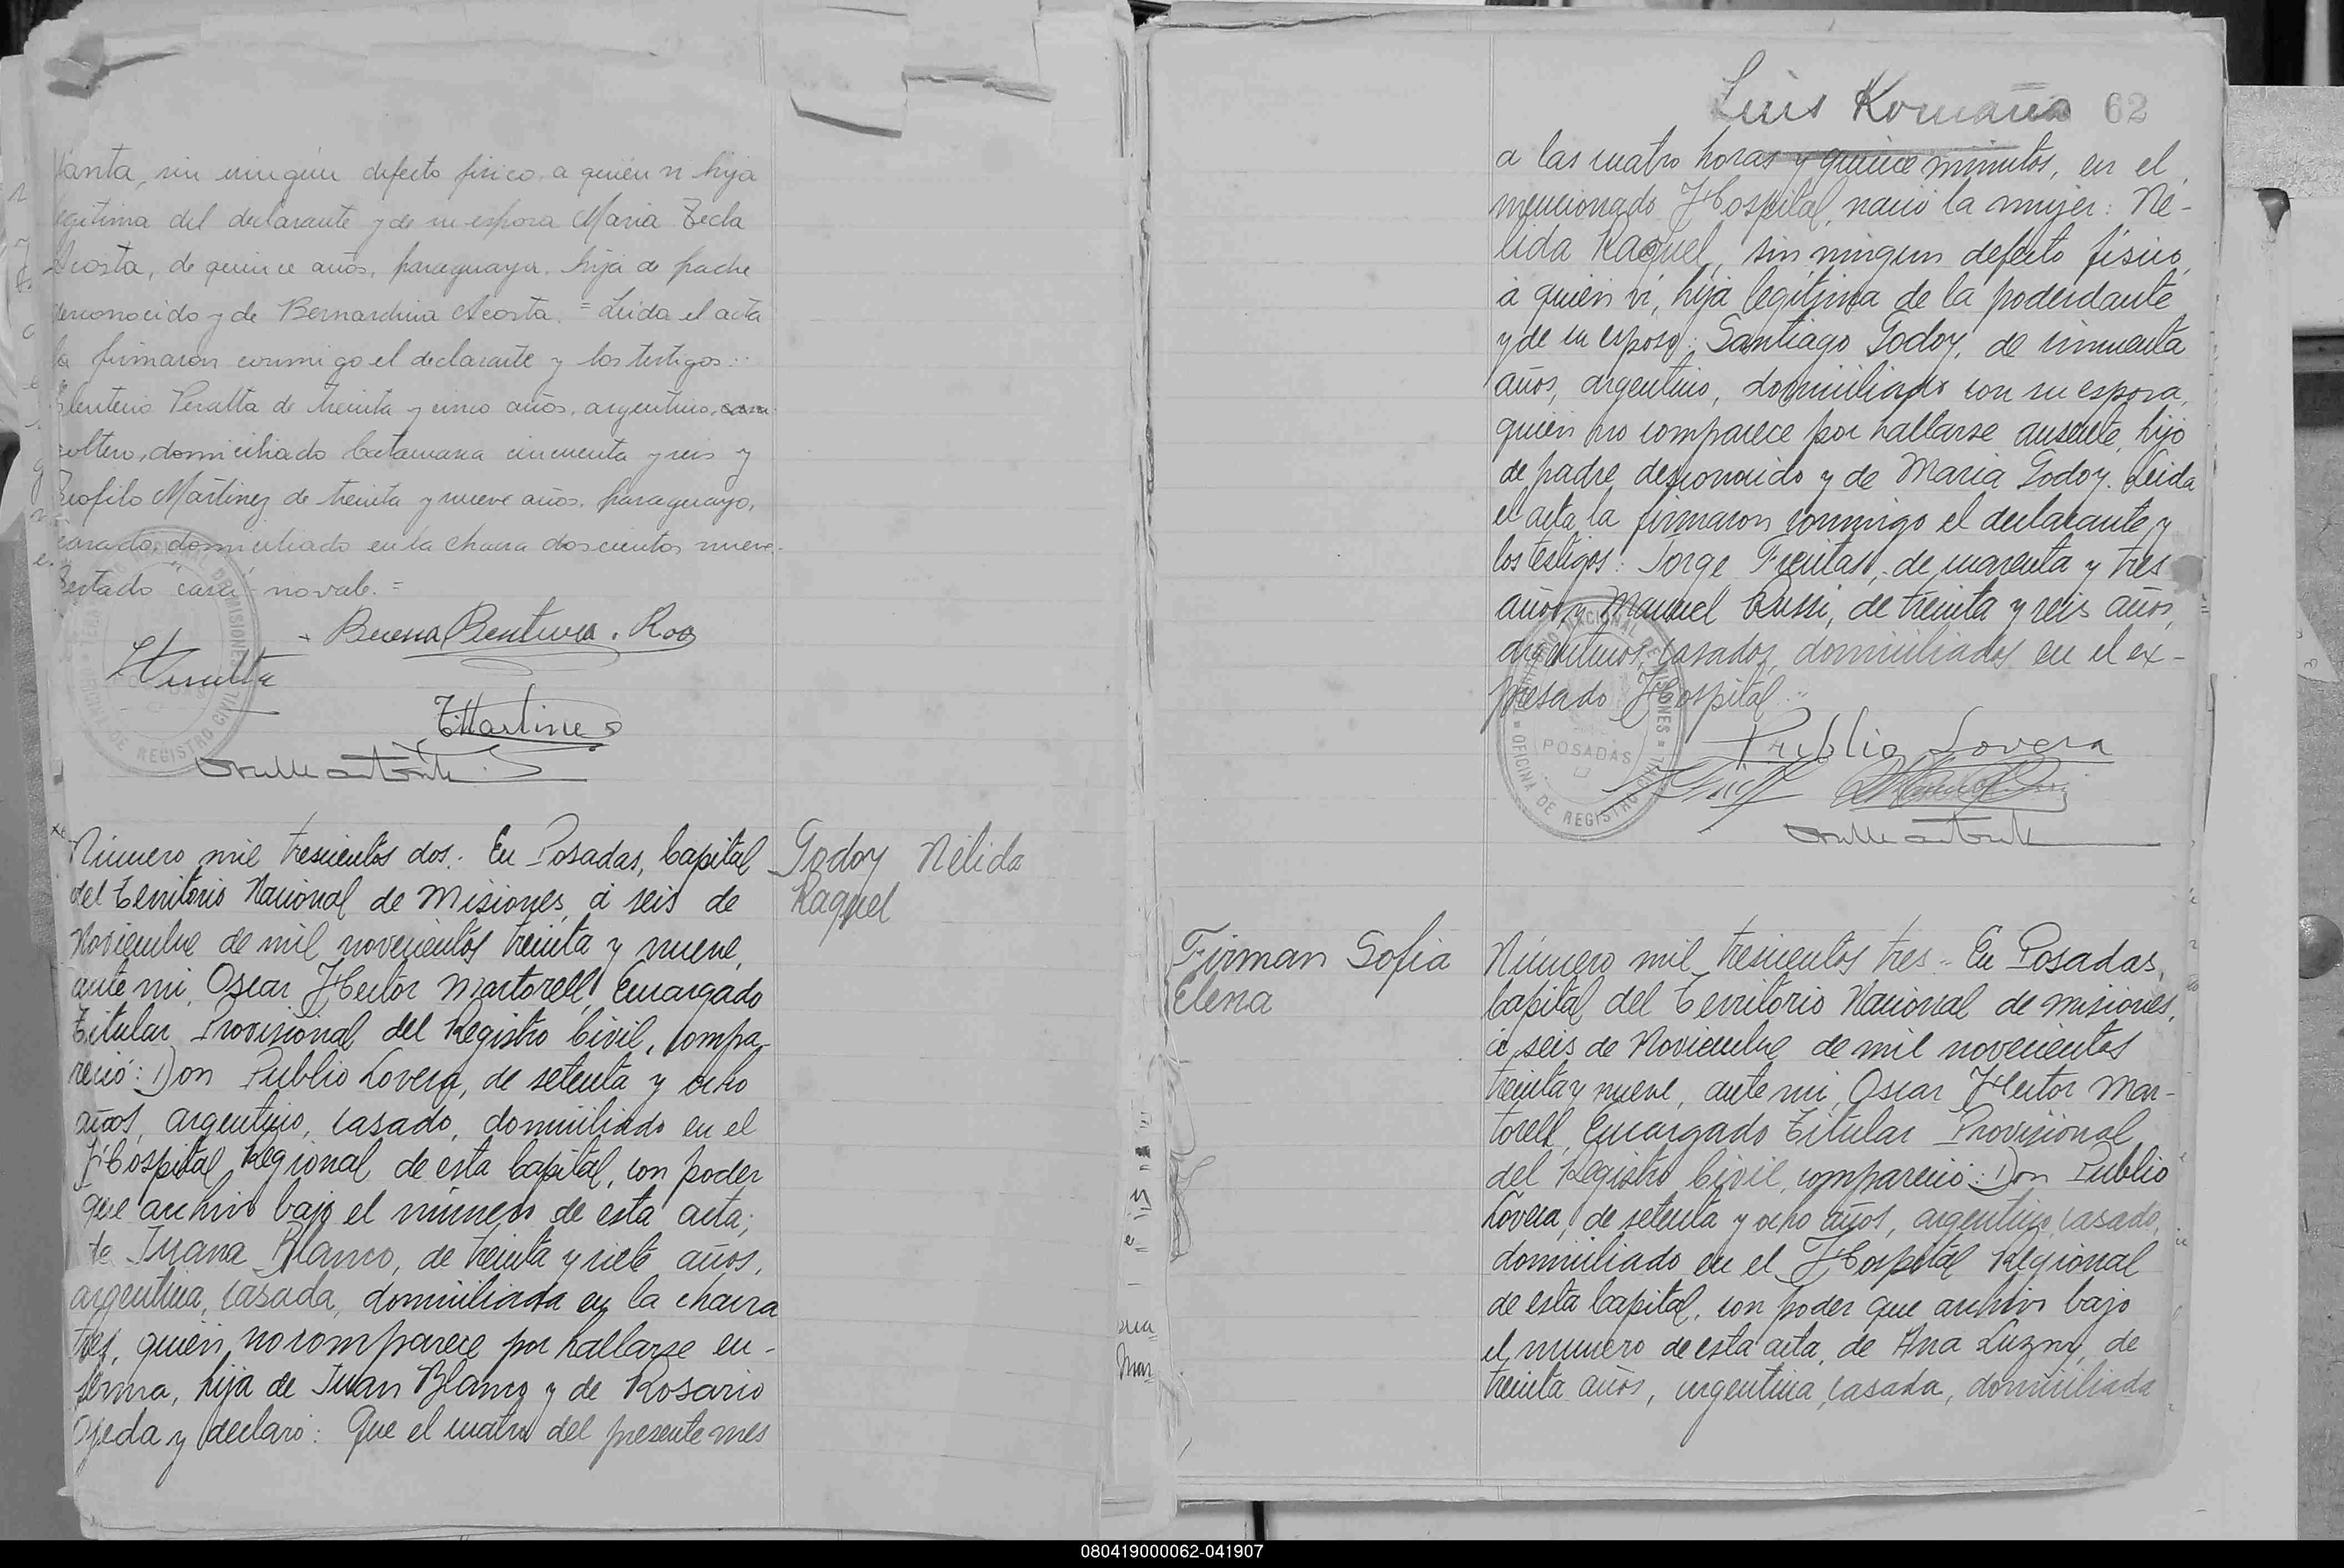 vanta, sin ningún defecto físico, a quién vi hija
legítima del declarante y de su esposa María Tecla
Acosta, de quince años, paraguaya, hija de padre
desconocido y de Bernardina Acosta. = Leida el acta
la firmaron conmigo el declarante y los testigos:
Eleuterio Peralta de treinta y cinco años, argentino, casa
soltero, domiciliado Catamarca cincuenta y seis y
Teofilo Martinez de treinta y nueve años, paraguayo,
casado, domiciliado en la chacra doscientos nueve.
Testado "casa" no vale. =
Buena Bentura Roa
EPeralta
TMartinez
Número mil trescientos dos: En Posadas, Capital
del Territorio Nacional de Misiones, á seis de
Noviembre de mil novecientos treinta y nueve,
ante mi, Oscar Hector Martorell, Encargado
Titular Provisional del Registro Civil, compa-
reció: Don Publio Lovera, de setenta y ocho
años, argentino, casado, domiciliado en el
Hospital Regional de esta Capital, con poder
que archivo bajo el número de esta acta,
de Juana Blanco, de treinta y siete años,
argentina, casada, domiciliada en la chacra
tres, quién no comparece por hallarse en-
ferma, hija de Juan Blanco y de Rosario
Ojeda y declaró: Que el cuatro del presente mes
Godoy Nélida
Raquel
Luis Romaña 62
a las cuatro horas y quince minutos, en el
mencionado Hospital, nació la mujer: Né-
lida Raquel, sin ningun defecto físico,
á quién ví, hija legítima de la poderdante
y de su esposo: Santiago Godoy, de cincuenta
años, argentino, domiciliado con su esposa,
quién no comparece por hallarse ausente, hijo
de padre desconocido y de María Godoy. Leida
el acta, la firmaron conmigo el declarante y
los testigos: Jorge Freitas, de cuarenta y tres
años y Manuel Russi, de treinta y seis años,
argentinos, casados, domiciliados en el ex-
presado Hospital:
Publio Lovera
TERRITORIO NACIONAL DE MISIONES
POSADAS
OFICINA DE REGISTRO CIVIL
Firman Sofía
Elena
Número mil trescientos tres: En Posadas,
Capital del Territorio Nacional de Misiones,
á seis de Noviembre de mil novecientos
treinta y nueve, ante mi, Oscar Hector Mar-
torell, Encargado Titular Provisional
del Registro Civil, compareció: Don Publio
Lovera, de setenta y ocho años, argentino, casado,
domiciliado en el Hospital Regional
de esta Capital, con poder que archivo bajo
el numero de esta acta, de Ana Luzny, de
treinta años, argentina, casada, domiciliada
080419000062-041907